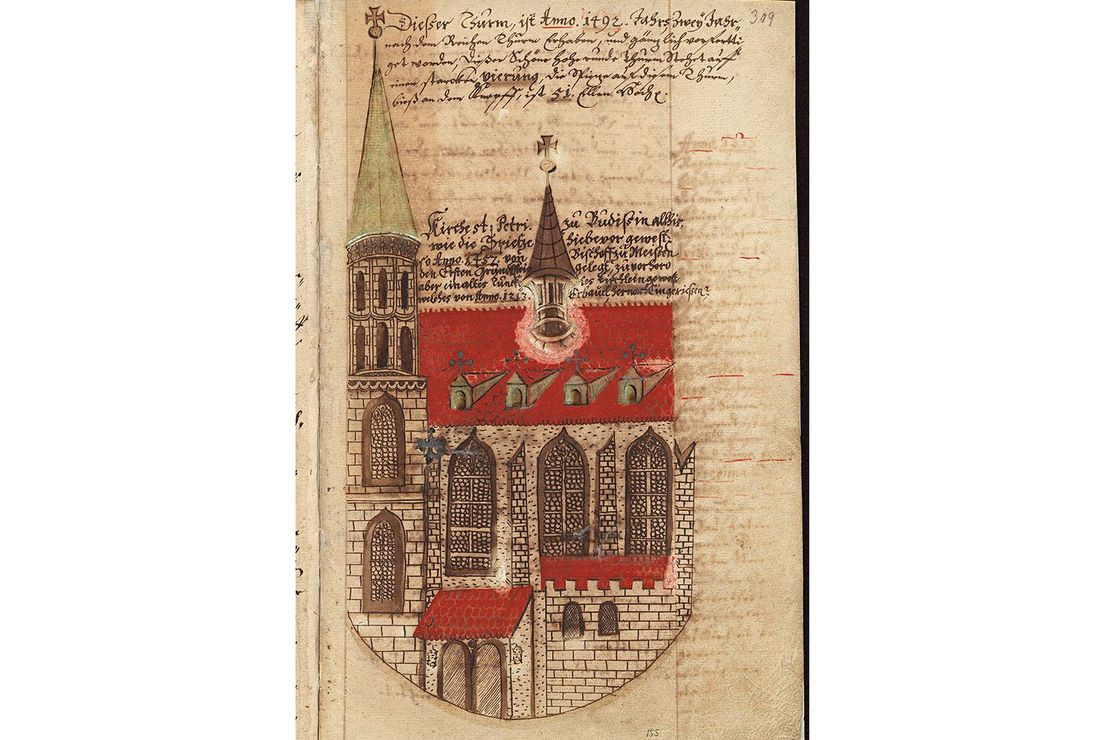 309
Dießer Thurm, ist Anno. 1492. Jahrs Zwey Jahr
nach dem Reichen Thurm Erhaben, und gäntzlich verfertti
get worden, Dießer Schöne hohe runde Thurm Stehet auff
einer starcken vierung, die Spitze auf diesem Thurm,
bieß an dem Knopff, ist 51. Ellen Hoch.
Kirche st. Petri. zu Budißin allhir,
wie die Spietze hiebevor gewest.
so Anno. 1457. von Bischoff zu Meißen
den Ersten Grundstein gelegt, zuvor
aber ein altes
welches von Anno. 1213. Erbaut hernach Eingerißen.
155